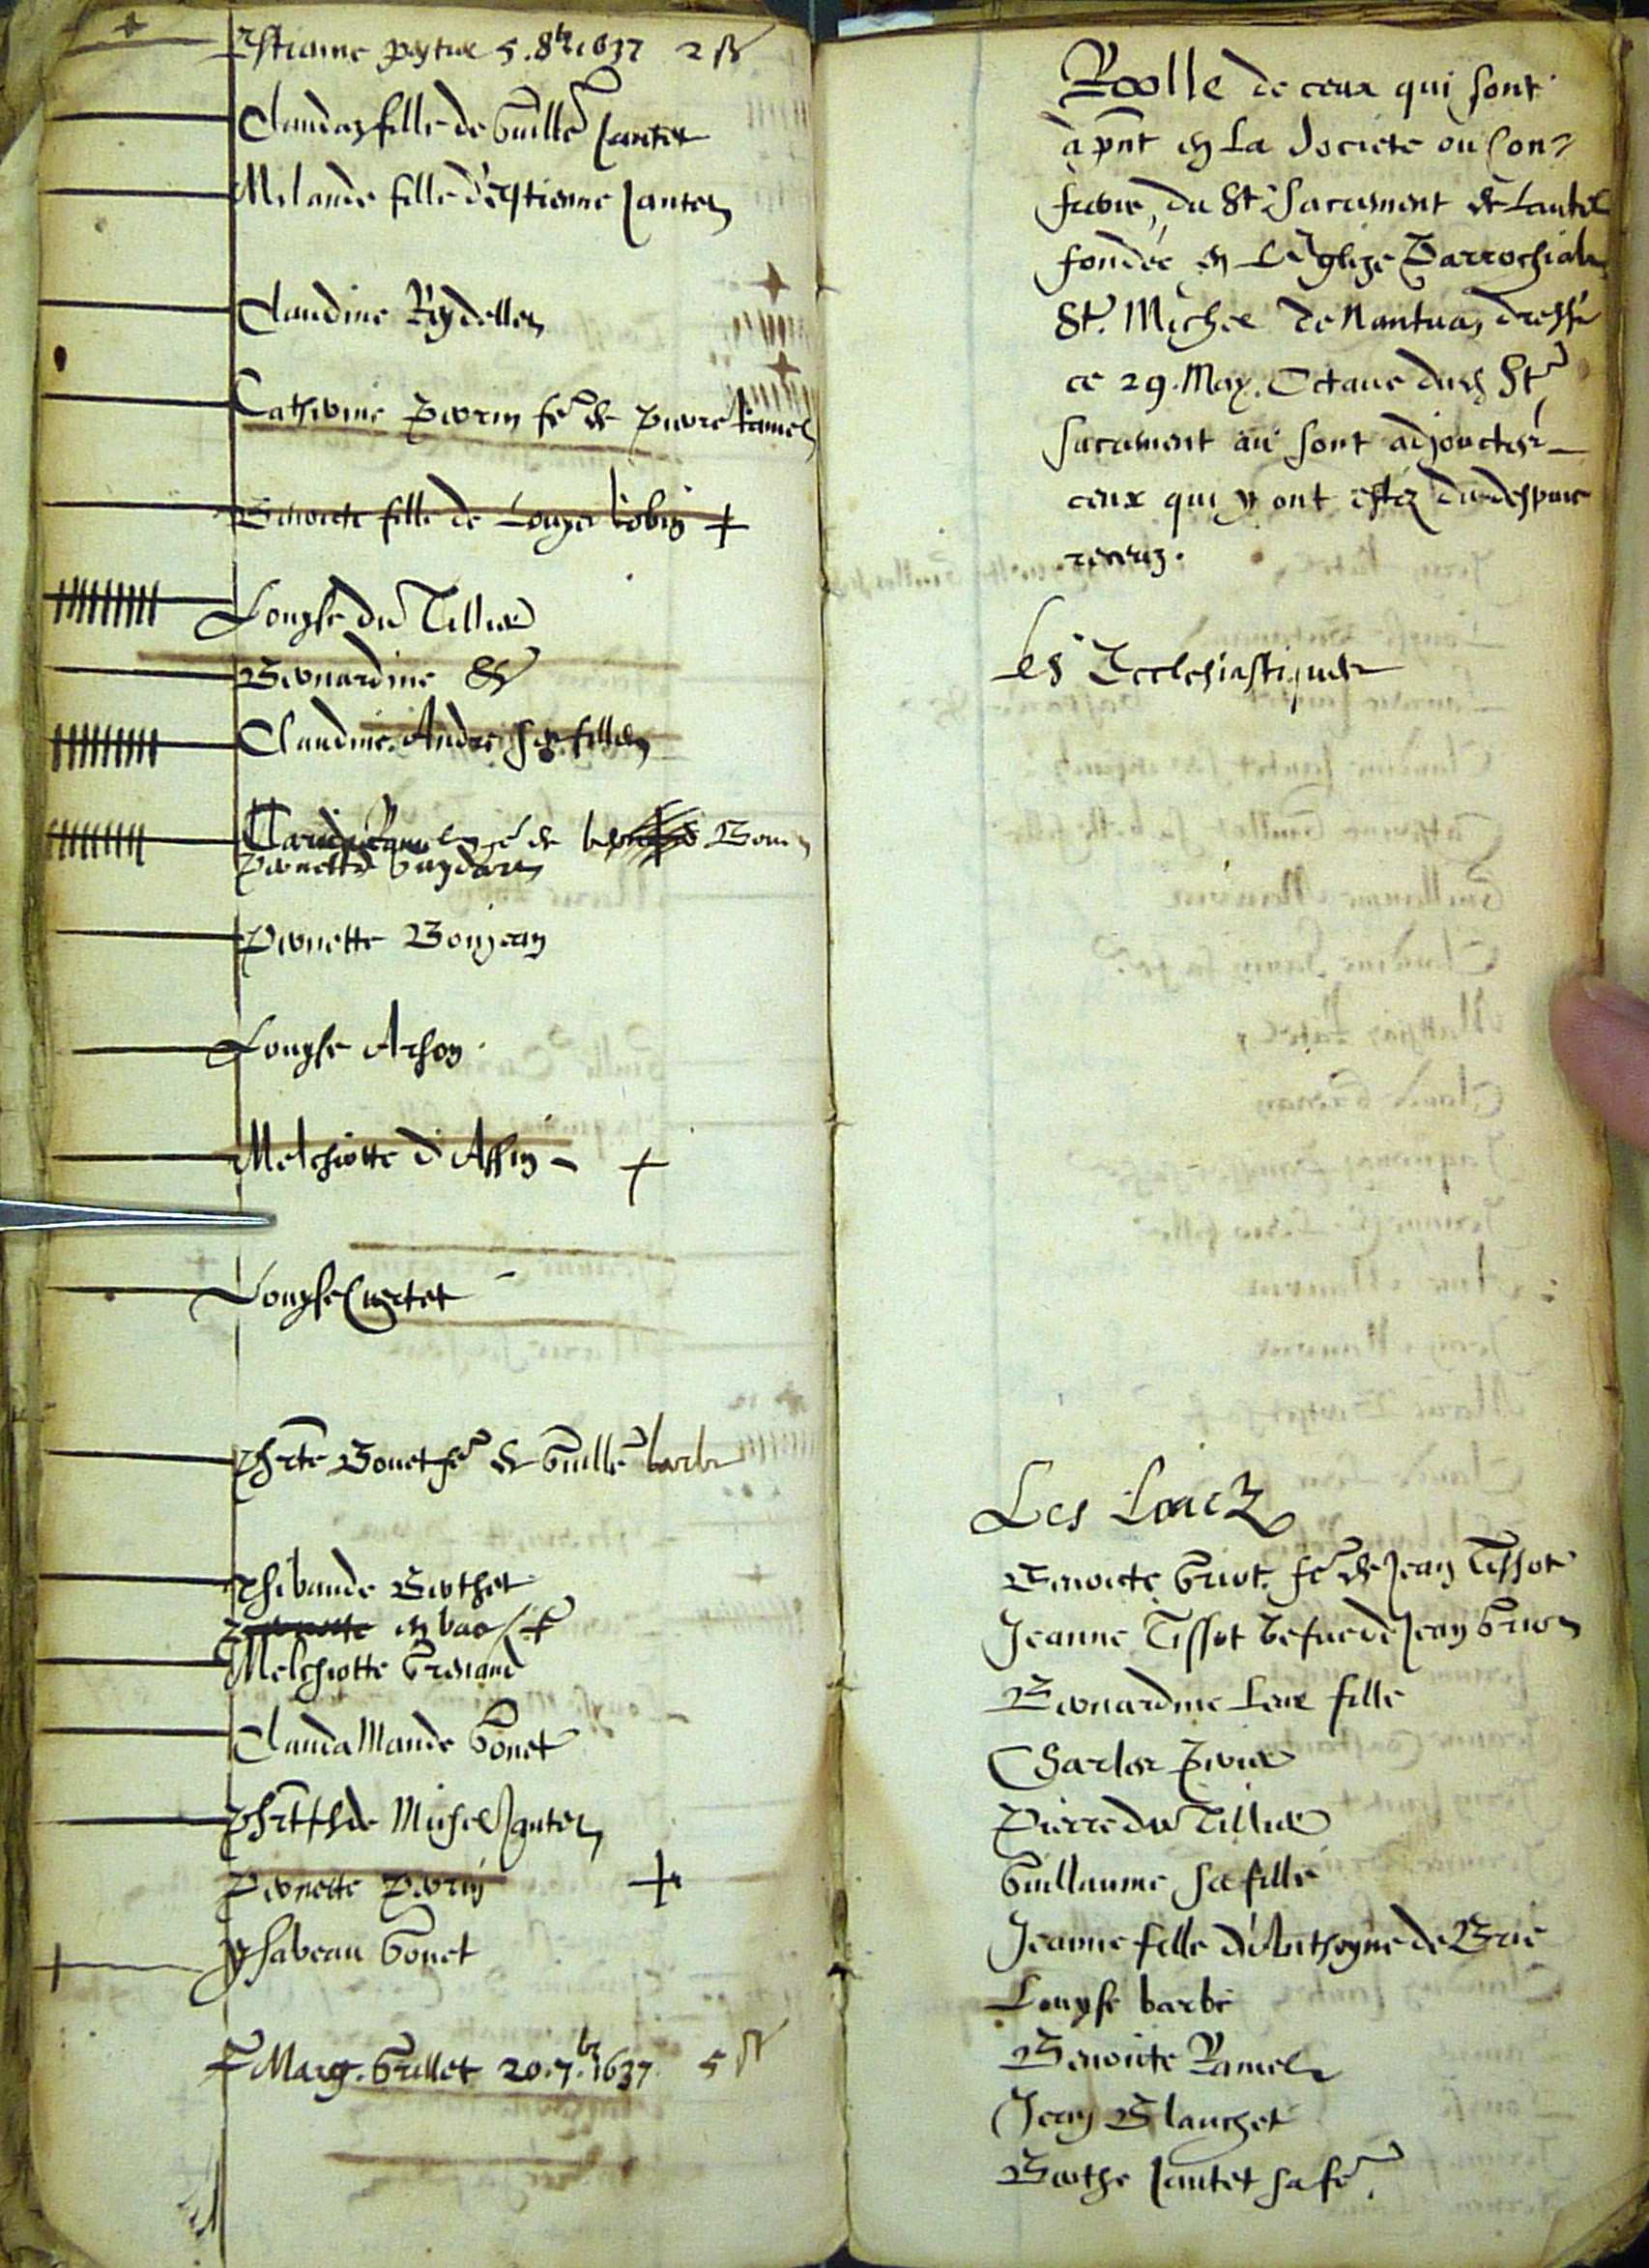 Estienne 5. 8bre 1637 2 ß
Clauda fille de Guille Jantet
Milande fille d'Estienne Jantet
Claudine Reydellet
Catherine Perrin fe de Pierre Ramel
Benoite fille de Robin +
Louyse du Tillier
Bernardine &
Claudine Andree ses filles
fe de
Pernette
Pernette Bonjean
Louyse
Melchiotte d'Assin - +
Louyse
Phrte Bonet fe de Guille barbe
Thivande Berthet
en bas
Melchiotte Grenand
Clauda Mande Gonet
Phrte f de Michel Jantet
Pernette Perrin +
Ysabeau Gonet
Marg. Grillet 20. 7.bre 1637. 5 ß
Roolle de ceux qui sont
a pnt en la Societe ou Con=
frerie, du St Sacrement de Lautel
fondée en L'Eglize Parrochiale
St. Michel de Nantua, dressé
ce 29. May. Octave dud St
Sacrement au sont adjouctes
ceux qui y ont estez du despuis
receuz.
Les Ecclesiastiques
Les Laicz
Benoite fe de Jean Tissot
Jeanne Tissot vefue de Jean
Bernardine leur fille
Charles Perrier
Pierre du Tillier
Guillaume sa fille
Jeanne fille d'Anthoyne de Brie
Louyse barbe
Benoite Ramel
Jean Blanchet
Berthe Jantet sa fe